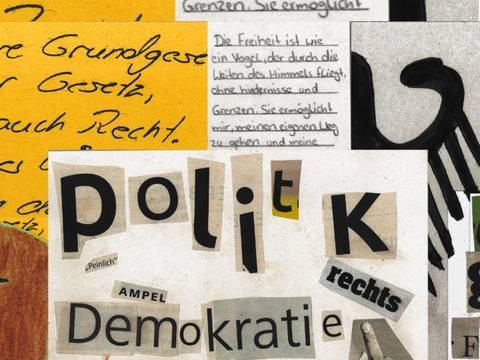 Grenzen. Sie ermöglicht
Grundgese
Gesetz,
auch Recht.
Die Freiheit ist wie
ein Vogel, der durch die
Weiten des Himmels fliegt,
ohne hindernisse und
Grenzen. Sie ermöglicht
mir, meinen eigenen Weg
zu gehen und meine
politk
„Peinlich“
rechts
AMPEL
Demokratie
F